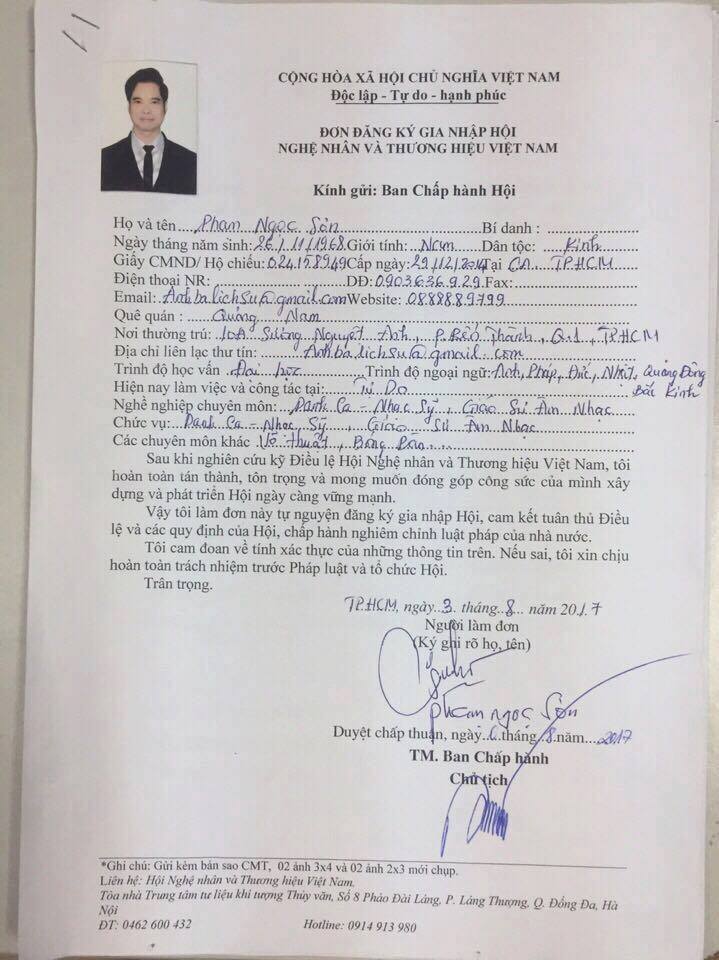 CỘNG HÒA XÃ HỘI CHỦ NGHĨA VIỆT NAM
Độc lập - Tự do - hạnh phúc
ĐƠN ĐĂNG KÝ GIA NHẬP HỘI
NGHỆ NHÂN VÀ THƯƠNG HIỆU VIỆT NAM
Kính gửi: Ban Chấp hành Hội
Họ và tên....Phan Ngọc Sơn...Bí danh : ...
Ngày tháng năm sinh: 26/11/1968 Giới tính: Nam Dân tộc: Kinh
Giấy CMND/ Hộ chiếu: 024158949 Cấp ngày: 29/12/2014 Tại CA. TP.HCM
Điện thoại NR:...DĐ: 0903636929 Fax:...
Email: Anhbalichsu@gmail.com Website: 0888889799
Quê quán : Quảng Nam
Nơi thường trú: 10A Sương Nguyệt Anh, P. Bến Thành, Q.1, TPHCM
Địa chỉ liên lạc thư tín: Anhbalichsu@gmail.com
Trình độ học vấn Đại học Trình độ ngoại ngữ: Anh, Pháp, Đức, Nhật, Quảng Đông
Hiện nay làm việc và công tác tại: Tự Do Bắc Kinh
Nghề nghiệp chuyên môn: Danh Ca - Nhạc Sỹ, Giáo Sư Âm Nhạc
Chức vụ: Danh Ca - Nhạc Sỹ, Giáo sư Âm Nhạc
Các chuyên môn khác Võ thuật, Bóng Bàn...
Sau khi nghiên cứu kỹ Điều lệ Hội Nghệ nhân và Thương hiệu Việt Nam, tôi
hoàn toàn tán thành, tôn trọng và mong muốn đóng góp công sức của mình xây
dựng và phát triển Hội ngày càng vững mạnh.
Vậy tôi làm đơn này tự nguyện đăng ký gia nhập Hội, cam kết tuân thủ Điều
lệ và các quy định của Hội, chấp hành nghiêm chỉnh luật pháp của nhà nước.
Tôi cam đoan về tính xác thực của những thông tin trên. Nếu sai, tôi xin chịu
hoàn toàn trách nhiệm trước Pháp luật và tổ chức Hội.
Trân trọng.
TP.HCM, ngày 3 tháng 8 năm 2017
Người làm đơn
(Ký ghi rõ họ, tên)
phan ngọc Sơn
Duyệt chấp thuận, ngày 6 tháng 8 năm 2017
TM. Ban Chấp hành
Chủ tịch
*Ghi chú: Gửi kèm bản sao CMT, 02 ảnh 3x4 và 02 ảnh 2x3 mới chụp.
Liên hệ: Hội Nghệ nhân và Thương hiệu Việt Nam.
Tòa nhà Trung tâm tư liệu khí tượng Thủy văn, Số 8 Pháo Đài Láng, P. Láng Thượng, Q. Đống Đa, Hà
Nội
ĐT: 0462 600 432 Hotline: 0914 913 980